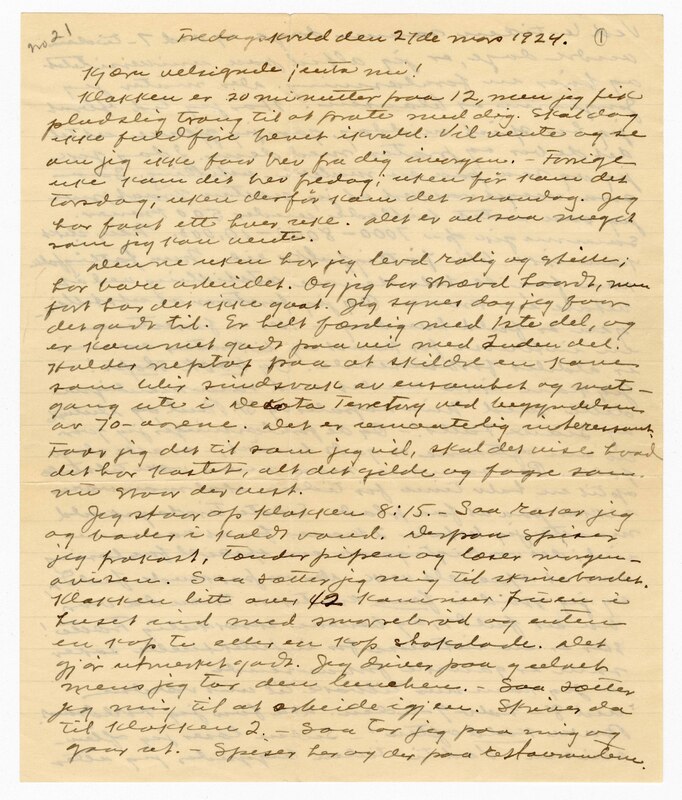 no. 21
Fredagskveld den 27de mars 1924. 1
Kjære velsignede jenta mi!
Klokken er 20 minutter paa 12, men jeg fik
pludselig trang til at prate med dig. Skal dog
ikke fuldføre brevet ikvald. Vil vente og se
om jeg ikke faar brev fra dig imorgen. - Forrige
uke kom dit brev fredag; uken før kom det
torsdag; uken derfør kom det mandag. Jeg
har faat ett hver uke. Det er vel saa meget
som jeg kan vente.
Denne uken har jeg levd rolig og stille;
har bare arbeidet. Og jeg har strævd haardt, men
fort har det ikke gaat. Jeg synes dog jeg faar
det godt til. Er helt færdig med 1ste del, og
er kommet godt paa vei med 2nden del.
Holder neptop paa at skildre en kone
som blir sindssvak av ensomhet og mot-
gang ute i Dakota Territory ved begyndelsen
av 70-aarene. Det er uendelig interessant.
Faar jeg det til som jeg vil, skal det vise hvad
det har kostet, alt det gilde og fagre som
nu staar der vest.
Jeg staar op klokken 8:15. - Saa raker jeg
og bader i koldt vand. Derpaa spiser
jeg frokost, tænder pipen og læser morgen-
avisen. Saa sætter jeg mig til skrivebordet.
Klokken litt over 12 kommer fruen i
huset ind med smørrebrød og enten
en kop te eller en kop shokolade. Det
gjør utmerket godt. Jeg driver paa
mens jeg tar den lunchen. - Saa sætter
jeg mig til at arbeide igjen. Skriver da
til klokken 2. - Saa tar jeg paa mig og
gaar ut. - Spiser her og der paa restauranterne.